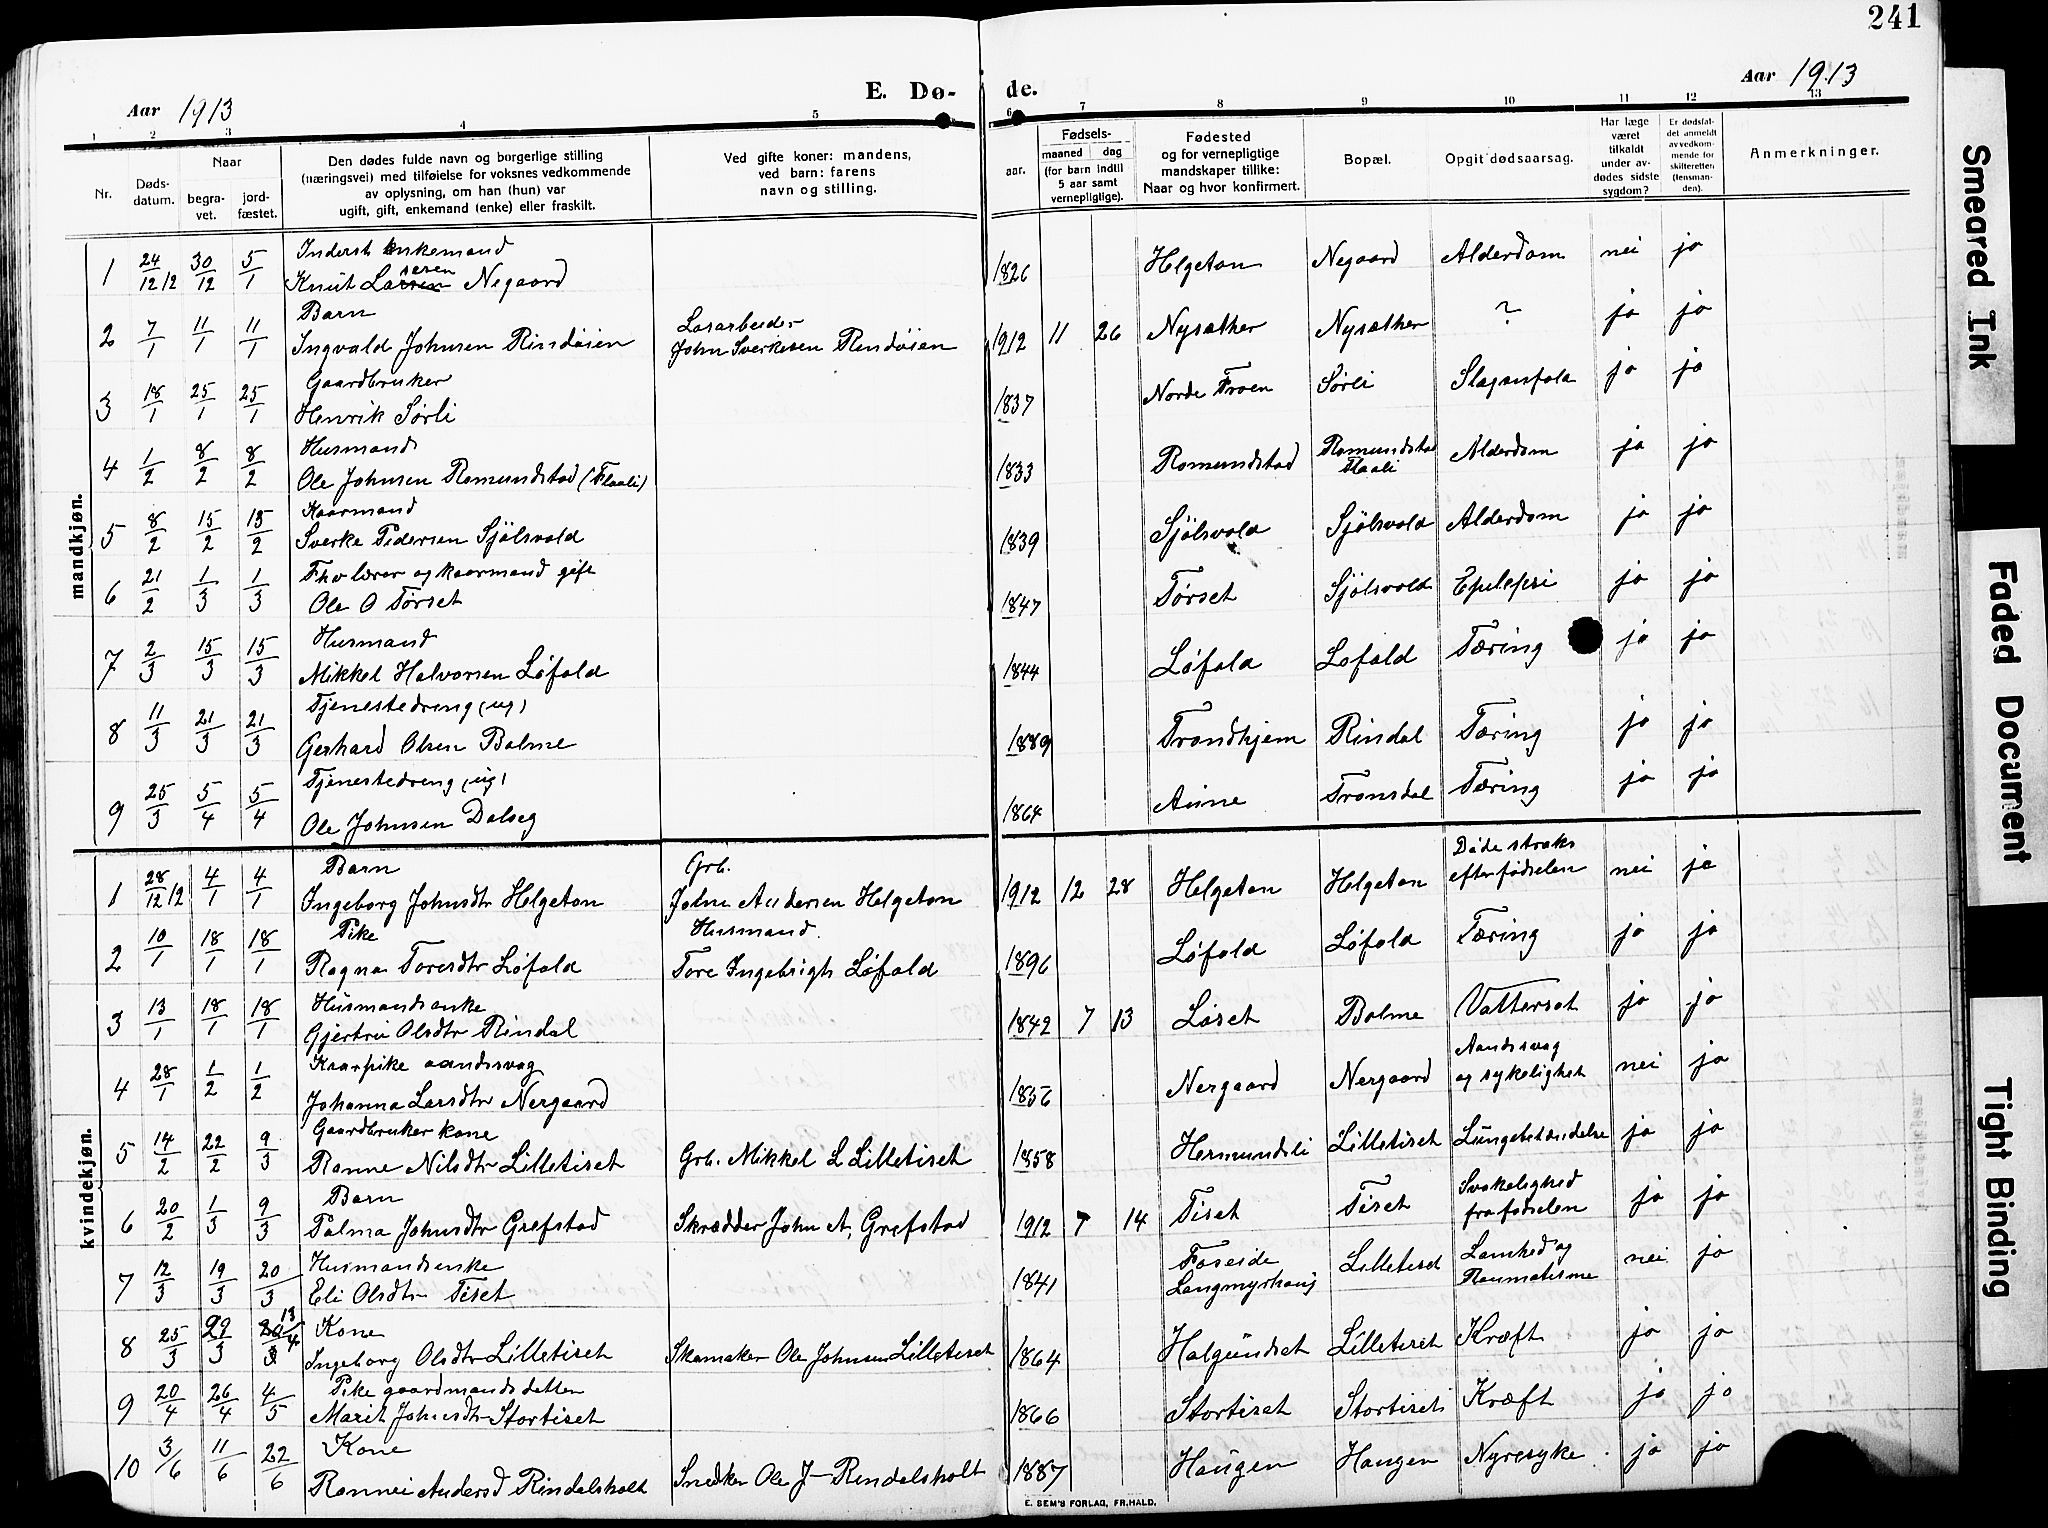 241
E. Dø- de.
Aar 1913
Aar 1913
1 2 3 4 5 6 7 8 9 10 11 12 13
Nr.
Døds-
datum.
Naar
begra-
vet.
jord-
fæstet.
Den dødes fulde navn og borgerlige stilling
(næringsvei) med tilføielse for voksnes vedkommende
av oplysning, om han (hun) var
ugift, gift, enkemand (enke) eller fraskilt.
Ved gifte koner: mandens,
ved barn: farens
navn og stilling.
Fødsels-
aar.
maaned dag
(for barn indtil
5 aar samt
vernepligtige).
Fødested
og for vernepligtige
mandskaper tillike:
Naar og hvor konfirmert.
Bopæl.
Opgit dødsaarsag.
Har læge
været
tilkaldt
under av-
dødes sidste
sygdom?
Er dødsfal-
det anmeldt
av vedkom-
mende for
skifteretten
(lensman-
den).
Anmerkninger.
mandkjøn.
Inderst enkemand
1 24/12 12 30/12 5/1 Knut Larsen Negaard 1826 Helgeton Negaard Alderdom nei ja
Barn Løsarbeider
2 7/1 11/1 11/1 Ingvald Johnsen Rindøien John Sverkesen Rindøien 1912 11 26 Nysæther Nysæther ? ja ja
Gaardbruker
3 18/1 25/1 25/1 Henrik Sørli 1837 Nordre Froen Sørli Slaganfald ja ja
Husmand
4 1/2 8/2 8/2 Ole Johnsen Romundstad (Flaali) 1833 Romundstad Romundstad Flaali Alderdom ja ja
Kaarmand
5 8/2 15/2 15/2 Sverke Pedersen Sjølsvold 1839 Sjølsvold Sjølsvold Alderdom ja ja
Fhv lærer og kaarmand gift
6 21/2 1/3 1/3 Ole O Tørset 1847 Tørset Sjølsvold Epilepsi ja ja
Husmand
7 2/3 15/3 15/3 Mikkel Halvorsen Løfald 1844 Løfald Løfald Tæring ja ja
Tjenestedreng (ug)
8 11/3 21/3 21/3 Gerhard Olsen Bolme 1889 Trondhjem Rindal Tæring ja ja
Tjenestedreng (ug)
9 25/3 5/4 5/4 Ole Johnsen Dalseg 1864 Aune Tronsdal Tæring ja ja
kvindekjøn.
Barn Grb. Døde straks
1 28/12 12 4/1 4/1 Ingeborg Johnsdtr Helgeton John Andersen Helgeton 1912 12 28 Helgeton Helgeton efter fødselen nei ja
Pike Husmand.
2 10/1 18/1 18/1 Ragna Toresdtr Løfald Tore Ingebrigts Løfald 1896 Løfald Løfald Tæring ja ja
Husmandsenke
3 13/1 18/1 18/1 Gjertru Olsdtr Rindal 1842 7 13 Løset Bolme Vattersot ja ja
Kaarpike aandssvag Aandssvag
4 28/1 1/2 1/2 Johanna Larsdtr Nergaard 1856 Nergaard Nergaard og sykelighet nei ja
Gaardbruker kone
5 14/2 22/2 9/3 Ranne Nilsdtr Lilletiset Grb. Mikkel L Lilletiset 1858 Hermundsli Lilletiset Lungebetændelse ja ja
Barn Svakelighed
6 20/2 1/3 9/3 Palma Johnsdtr Grefstad Skrædder John A. Grefstad 1912 7 14 Tiset Tiset fra fødselen ja ja
Husmandsenke Foseide Lamhed og
7 12/3 19/3 20/3 Eli Olsdtr Tiset 1841 Langmyrhaug Lilletiset Raumatisme nei ja
Kone
8 25/3 29/3 13/4 Ingeborg Olsdtr Lilletiset Skomaker Ole Johnsen Lilletiset 1864 Halgundset Lilletiset Kræft ja ja
Pike gaardmands datter
9 20/4 26/4 4/5 Marit Johnsdtr Stortiset 1866 Stortiset Stortiset Kræft ja ja
Kone
10 3/6 11/6 22/6 Rannei Andersd Rindalsholt Snedker Ole J- Rindalsholt 1887 Haugen Haugen Nyresyke ja ja
E. SEM'S FORLAG, FR.HALD.
Smeared Ink
Faded Document
Tight Binding